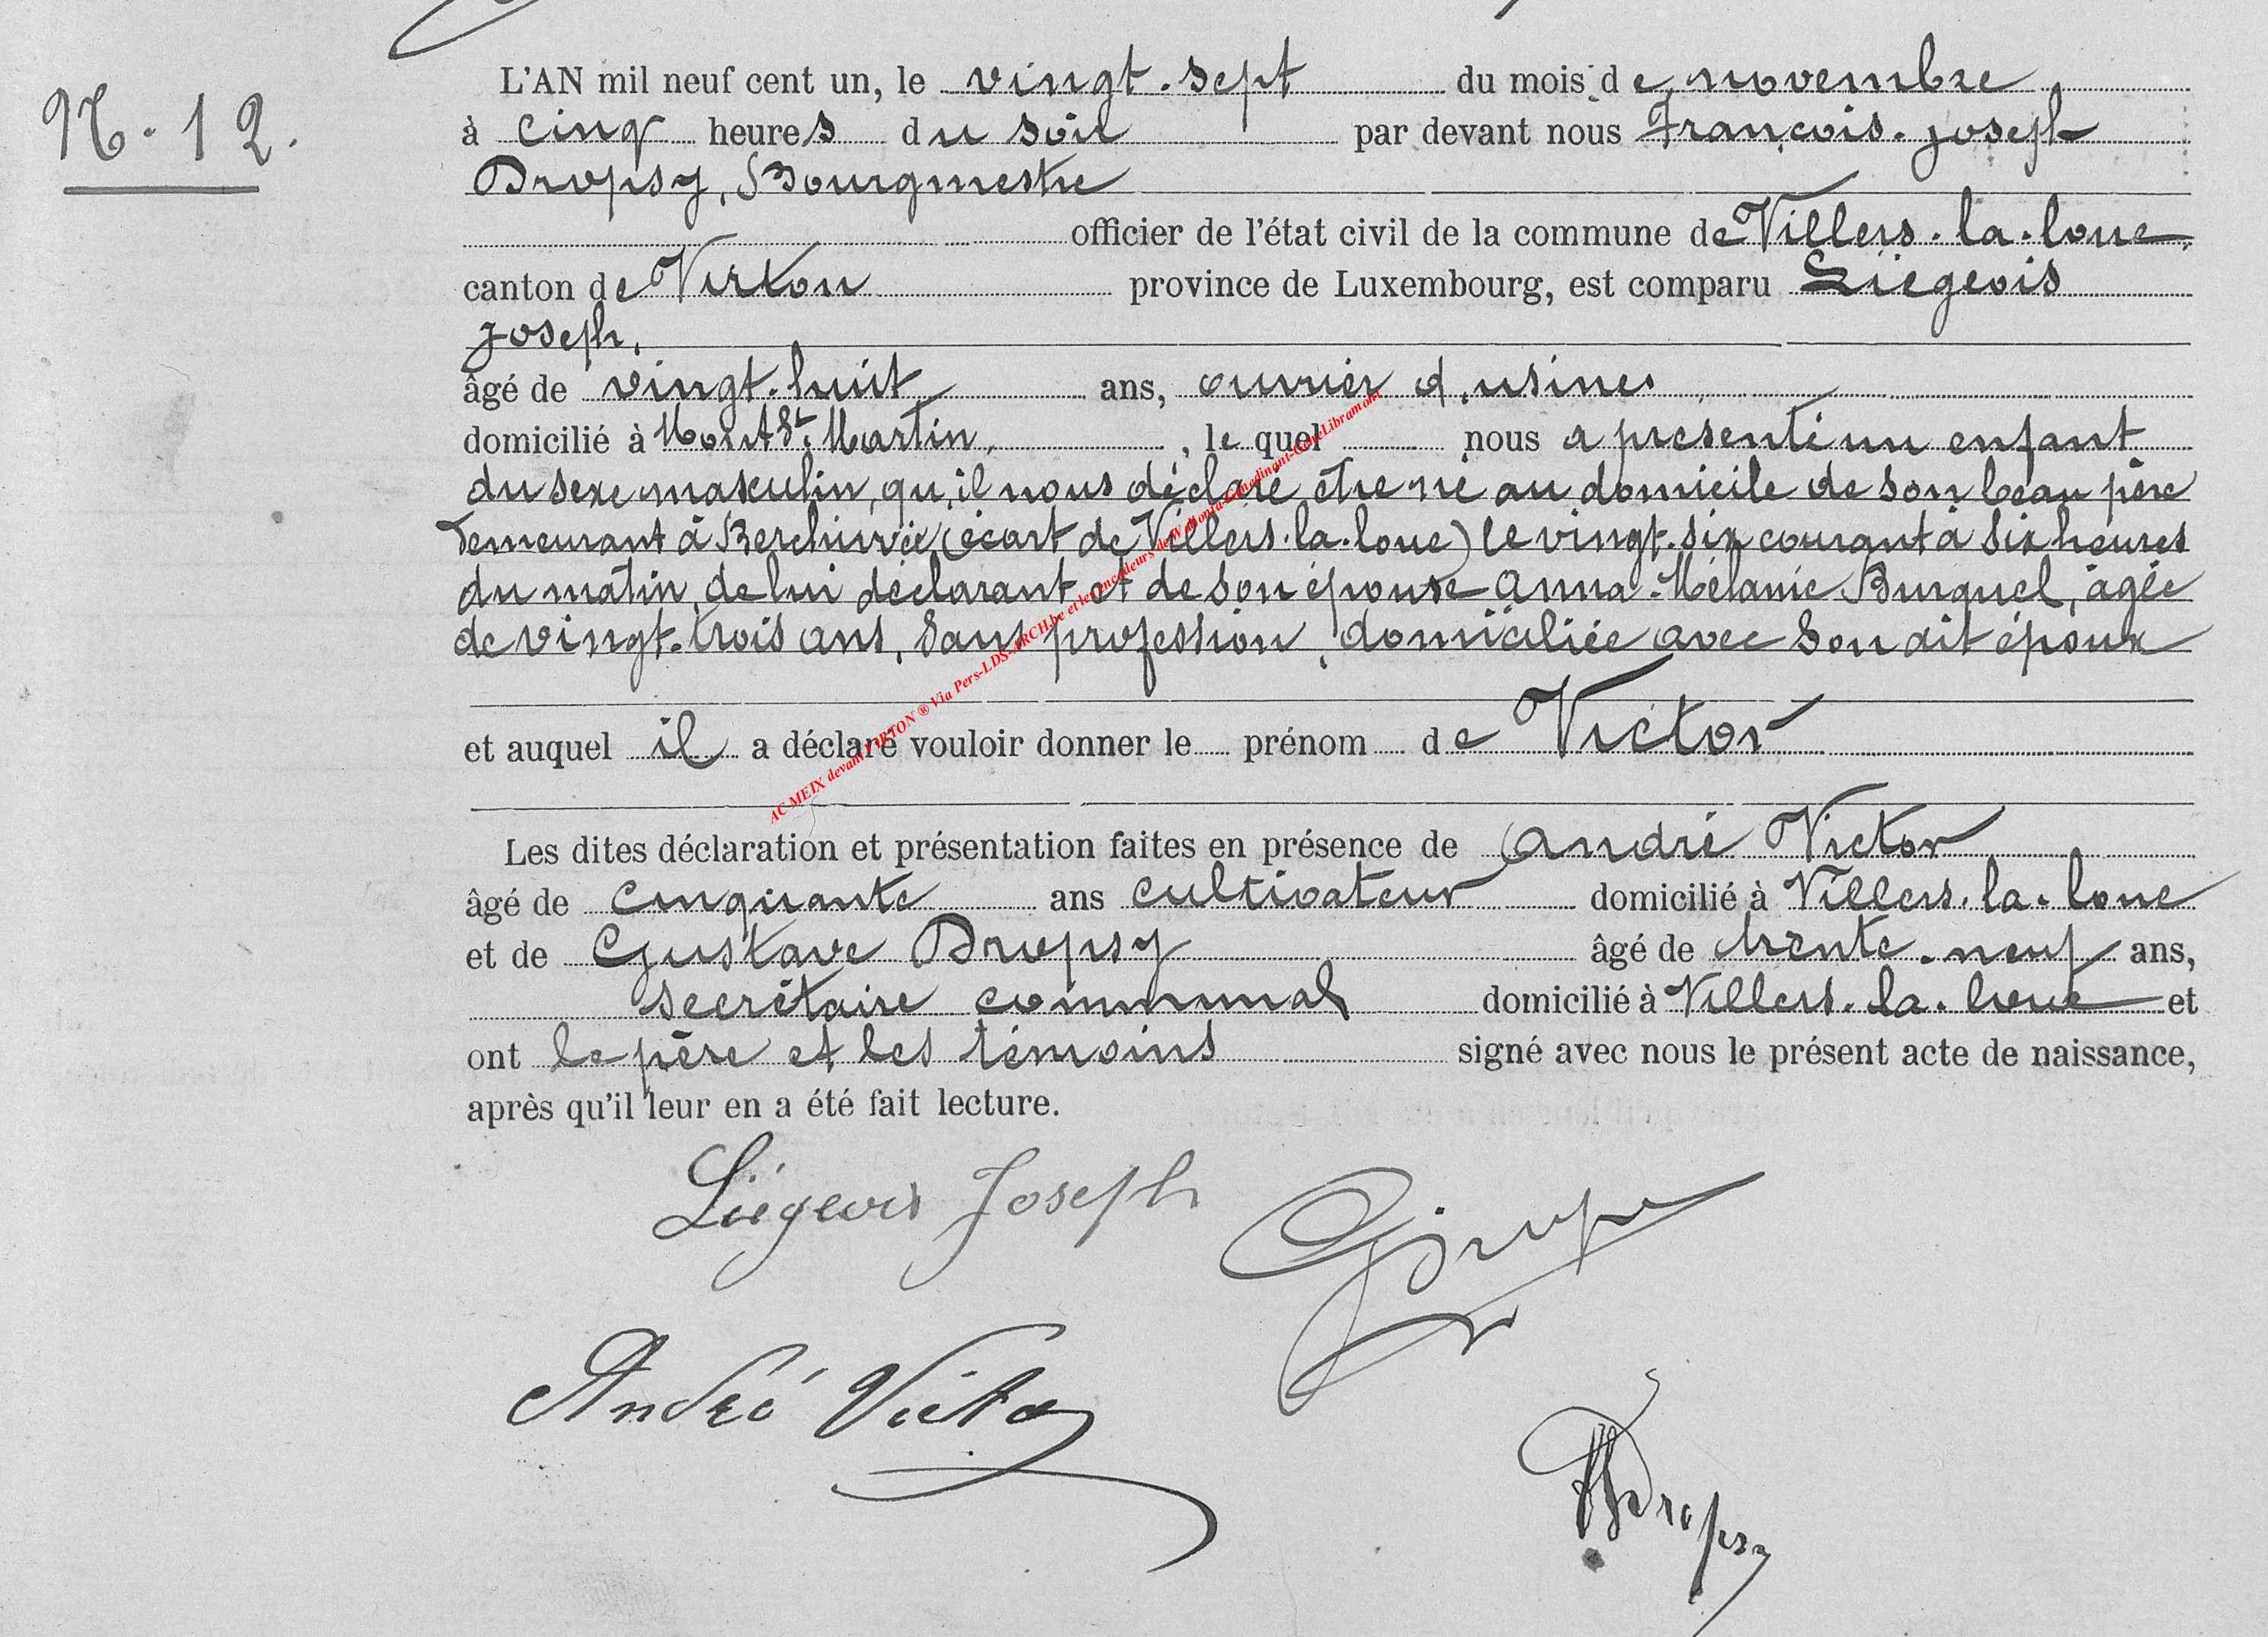 N. 12.
L'AN mil neuf cent un, le vingt-sept du mois de novembre
à cinq heures du soir par devant nous François-Joseph
Dropsy, Bourgmestre
officier de l'état civil de la commune de Villers-la-loue,
canton de Virton province de Luxembourg, est comparu Liégeois
Joseph,
âgé de vingt-huit ans, ouvrier d'usines
domicilié à Mont St. Martin, , lequel nous a présenté un enfant
du sexe masculin, qu'il nous déclare être né au domicile de son beau père
demeurant à Berchivée (écart de Villers-la-loue) le vingt-six courant à six heures
du matin, de lui déclarant et de son épouse Anna-Mélanie Burquel, âgée
de vingt-trois ans, sans profession, domiciliée avec son dit époux
et auquel il a déclaré vouloir donner le prénom de Victor
Les dites déclaration et présentation faites en présence de André Victor
âgé de cinquante ans cultivateur domicilié à Villers-la-loue
et de Gustave Dropsy âgé de trente-neuf ans,
secrétaire communal domicilié à Villers-la-loue et
ont le père et les témoins signé avec nous le présent acte de naissance,
après qu'il leur en a été fait lecture.
Liégeois Joseph
André Victor
Dropsy
AC MEIX devant VIRTON ® Via Pers-LDS-ARCH.be et les encodeurs de